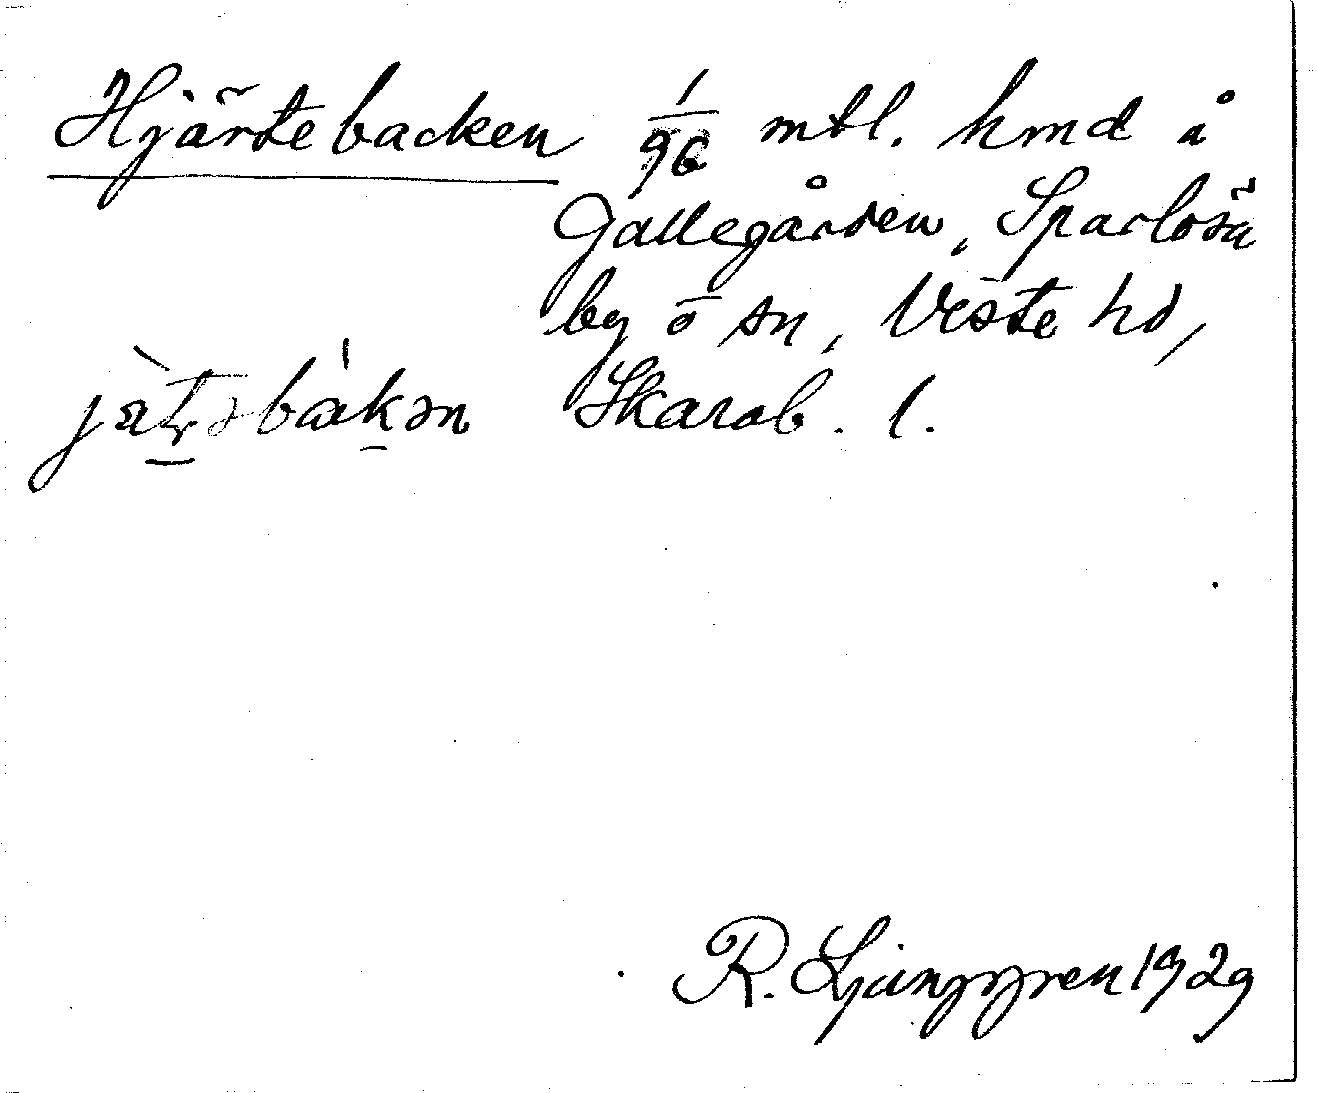 Hjärtebacken 1/96 mtl. hmd å
Gallegården, Sparlösa
by o sn, Viste hd,
Skarab. l.
R. Ljunggren 1929